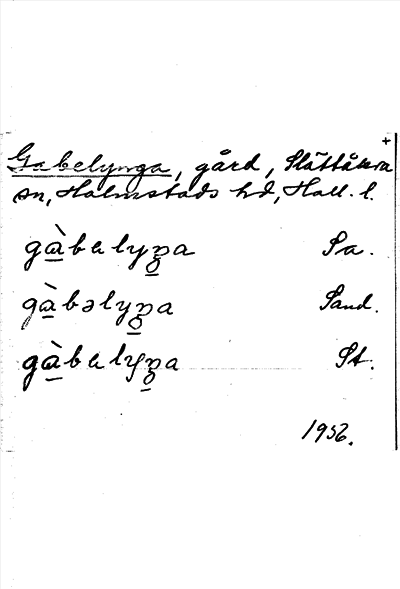 +
Gabelynga, gård, Slättåkra
sn, Halmstads hd, Hall. l.
gàbelyŋa Sa.
gàbəlyŋa Sand.
gàbelyŋa St.
1952.